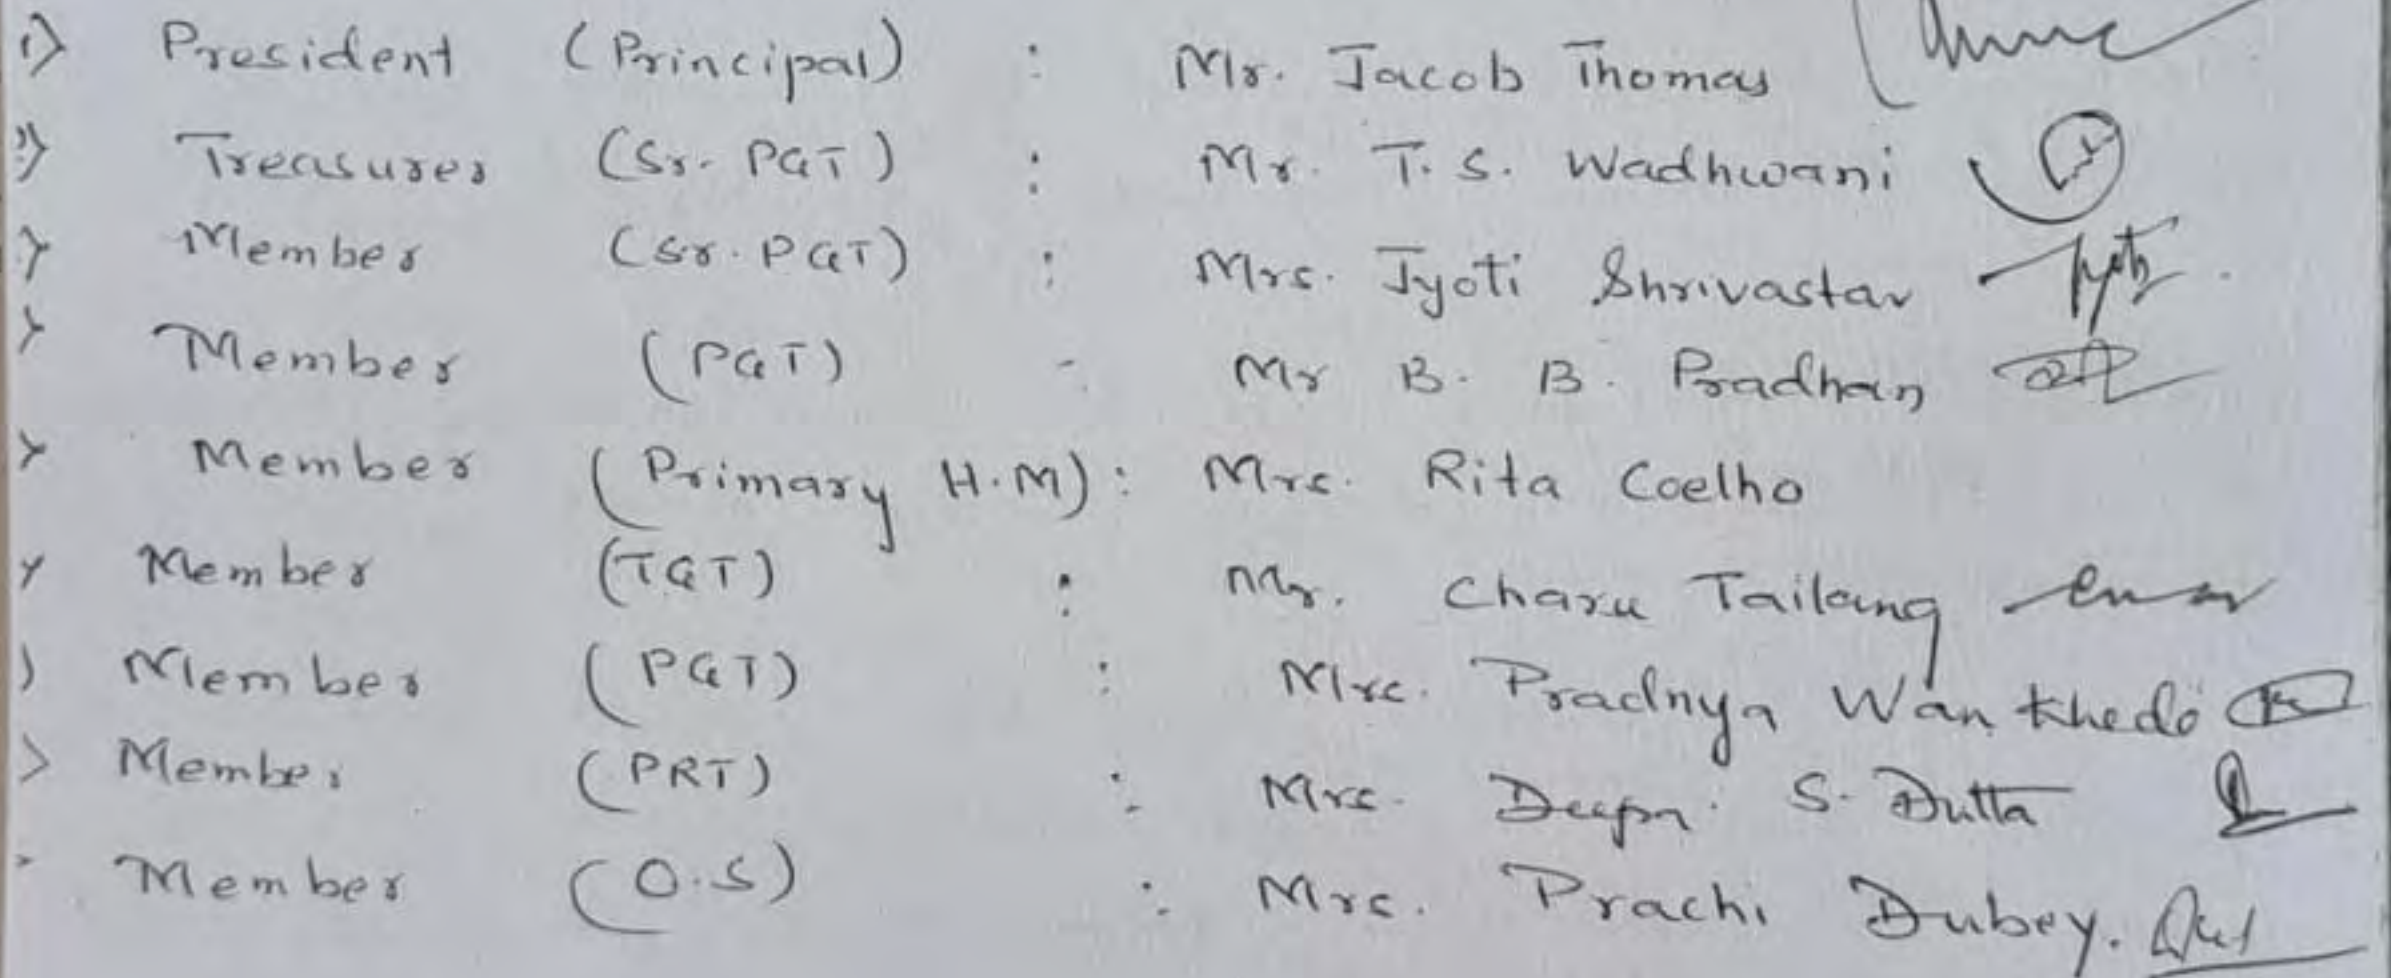 i) President (Principal) : Mr. Jacob Thomas
ii) Treasurer (Sr. PGT) : Mr. T. S. Wadhwani
Member (Sr. PGT) : Mrs. Jyoti Shrivastav
Member (PGT) - Mr B. B. Pradhan
Member (Primary H.M) : Mrs. Rita Coelho
Member (TGT) : Mr. Charu Tailang
Member (PGT) : Mrs. Pradnya Wankhede
Member (PRT) : Mrs. Deepa S. Dutta
Member (O.S) : Mrs. Prachi Dubey.